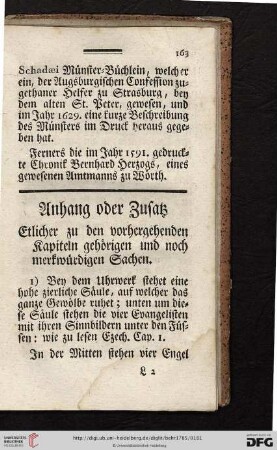 163
Schadæi Münster-Büchlein, welcher
ein, der Augsburgischen Confession zu-
gethaner Helfer zu Strasburg, bey
dem alten St. Peter, gewesen, und
im Jahr 1629. eine kurze Beschreibung
des Münsters im Druck heraus gege-
ben hat.
Ferners die im Jahr 1591. gedruck-
te Chronik Bernhard Herzogs, eines
gewesenen Amtmanns zu Wörth.
Anhang oder Zusatz
Etlicher zu den vorhergehenden
Kapiteln gehörigen und noch
merkwürdigen Sachen.
1) Bey dem Uhrwerk stehet eine
hohe zierliche Säule, auf welcher das
ganze Gewölbe ruhet; unten um die-
se Säule stehen die vier Evangelisten
mit ihren Sinnbildern unter den Füs-
sen: wie zu lesen Ezech. Cap. 1.
In der Mitten stehen vier Engel
L 2
© Universitätsbibliothek Heidelberg
gefördert durch die
DFG